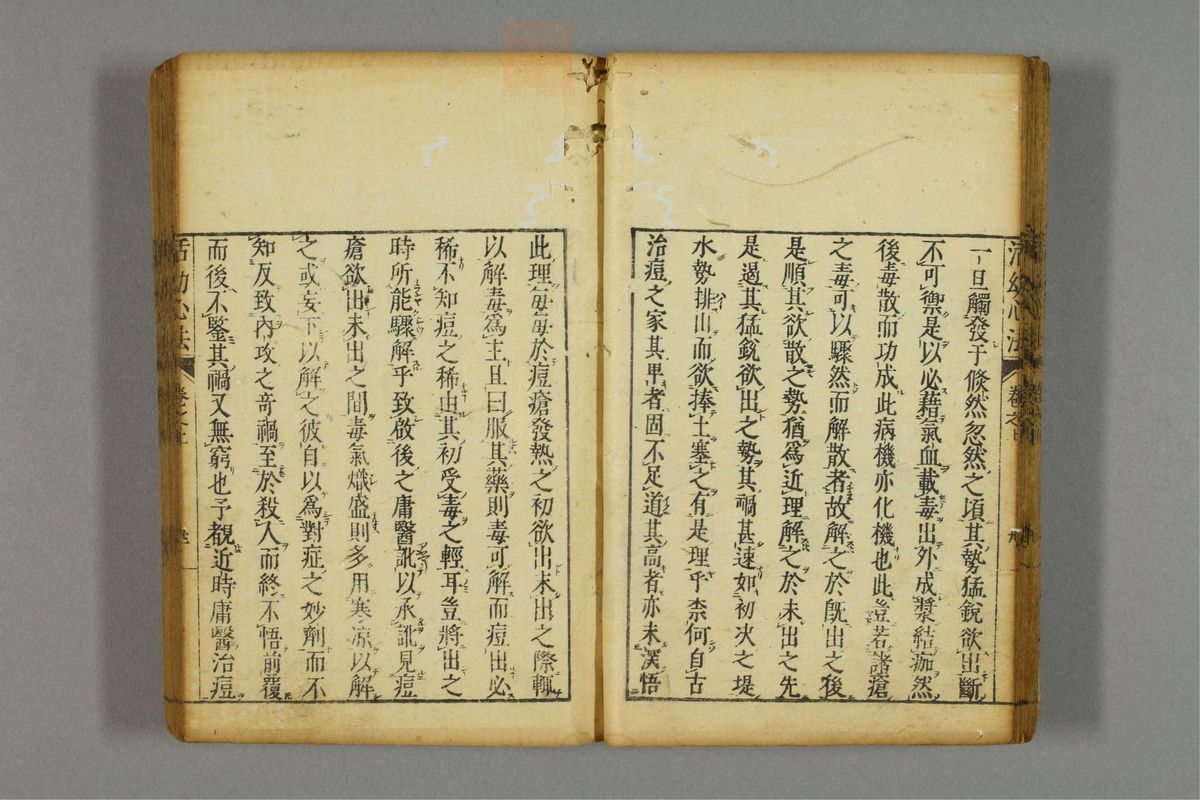 一旦觸發于倐然忽然之頃其勢猛銳欲出斷
不可禦是以必藉氣血載毒出外成漿結痂然
後毒散而功成此病機亦化機也此豈若諸瘡
之毒可以驟然而解散者故解之於既出之後
是順其欲散之勢猶爲近理解之於未出之先
是遏其猛銳欲出之勢其禍甚速如初决之堤
水勢排山而欲捧土塞之有是理乎柰何自古
治痘之家其卑者固不足道其高者亦未深悟
此理每每於痘瘡發熱之初欲出未出之際輙
以解毒爲主且曰服其藥則毒可解而痘出必
稀不知痘之稀由其初受毒之輕耳豈將出之
時所能驟解乎致啟後之庸醫訛以承訛見痘
瘡欲出未出之間毒氣熾盛則多用寒凉以解
之或妄下以解之彼自以爲對症之妙劑而不
知反致內攻之奇禍至於殺人而終不悟前覆
而後不鑒其禍又無窮也予觀近時庸醫治痘
活幼心法
卷之